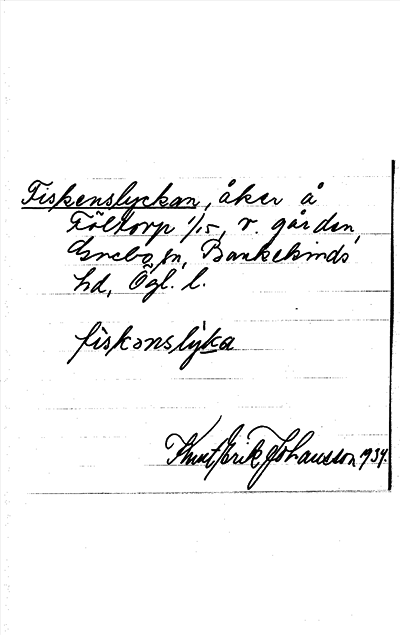 Fiskenslyckan, åker å
Föltorp 1/15, v. gården,
Grebo sn, Bankekinds
hd, Ögl. l.
fiskənslỳka
Knut Erik Johansson 1934.